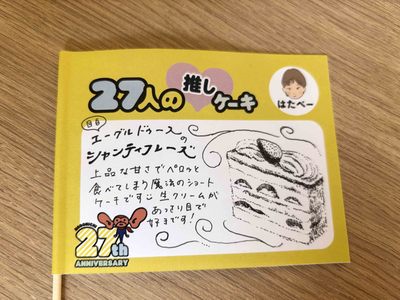 27人の推しケーキ
はたべー
目白
エーグルドゥースの
シャンティフレーズ
上品な甘さでペロッと
食べてしまう魔法のショート
ケーキです
生クリームが
あっさり目で
好きです!
27th
ANNIVERSARY